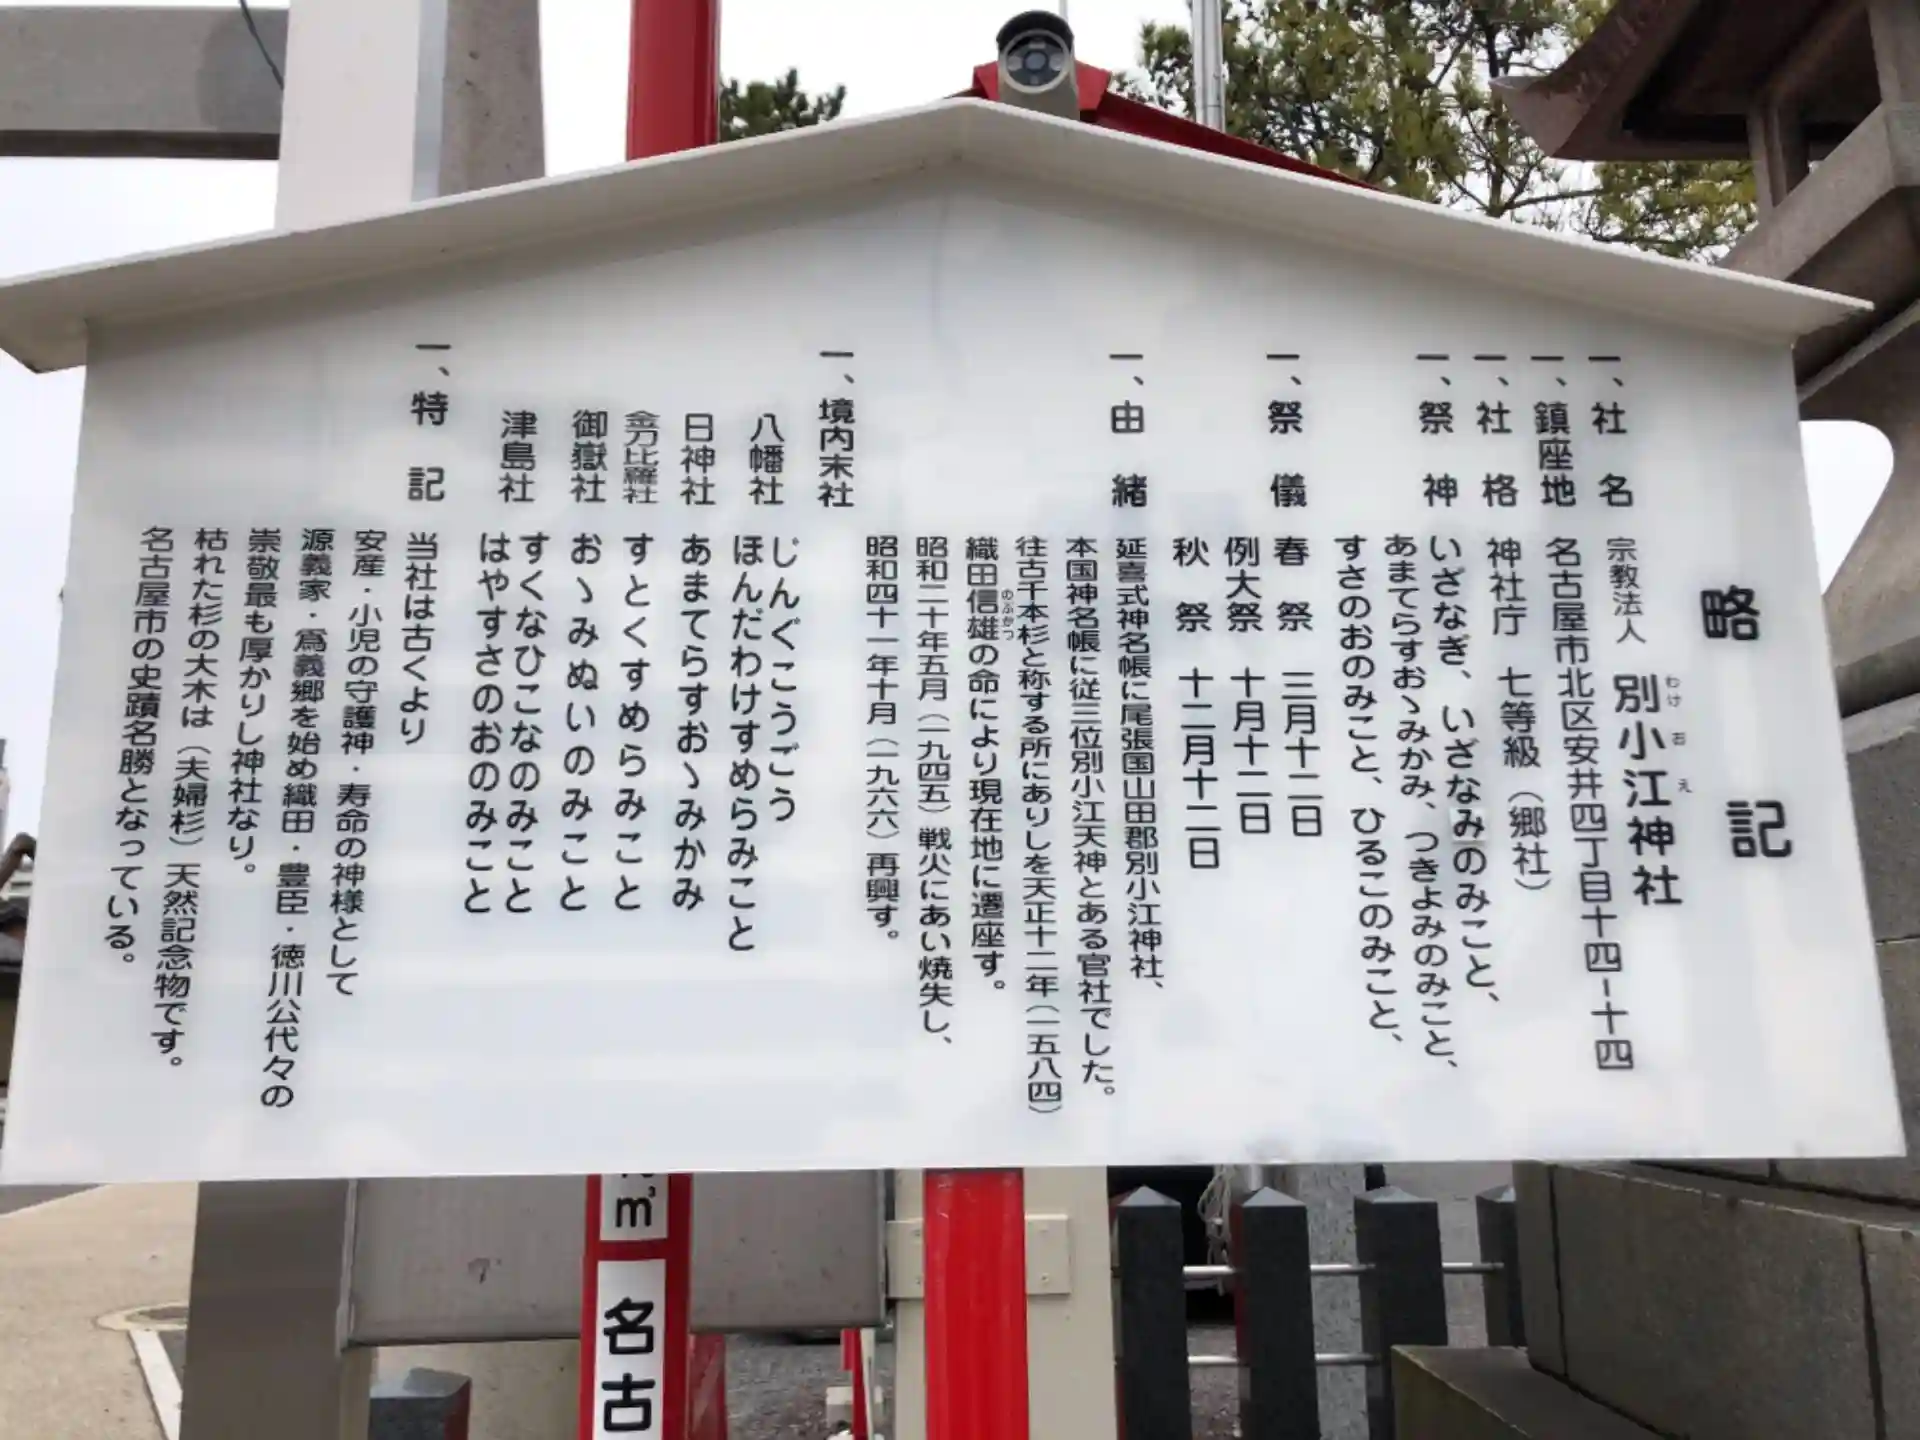 略記
一、社名 宗教法人 別小江神社
わけ お え
一、鎮座地 名古屋市北区安井四丁目十四-十四
一、社格 神社庁 七等級（郷社）
一、祭神 いざなぎ、いざなみのみこと、
あまてらすおゝみかみ、つきよみのみこと、
すさのおのみこと、ひるこのみこと、
一、祭儀 春祭 三月十二日
例大祭 十月十二日
秋祭 十二月十二日
一、由緒 延喜式神名帳に尾張国山田郡別小江神社、
本国神名帳に従三位別小江天神とある官社でした。
往古千本杉と称する所にありしを天正十二年（一五八四）
織田信雄の命により現在地に遷座す。
のぶかつ
昭和二十年五月（一九四五）戦火にあい焼失し、
昭和四十一年十月（一九六六）再興す。
一、境内末社
八幡社 じんぐこうごう
ほんだわけすめらみこと
日神社 あまてらすおゝみかみ
金刀比羅社 すとくすめらみこと
御嶽社 おゝみぬいのみこと
すくなひこなのみこと
津島社 はやすさのおのみこと
一、特記 当社は古くより
安産・小児の守護神・寿命の神様として
源義家・爲義郷を始め織田・豊臣・徳川公代々の
崇敬最も厚かりし神社なり。
枯れた杉の大木は（夫婦杉）天然記念物です。
名古屋市の史蹟名勝となっている。
m³
名古